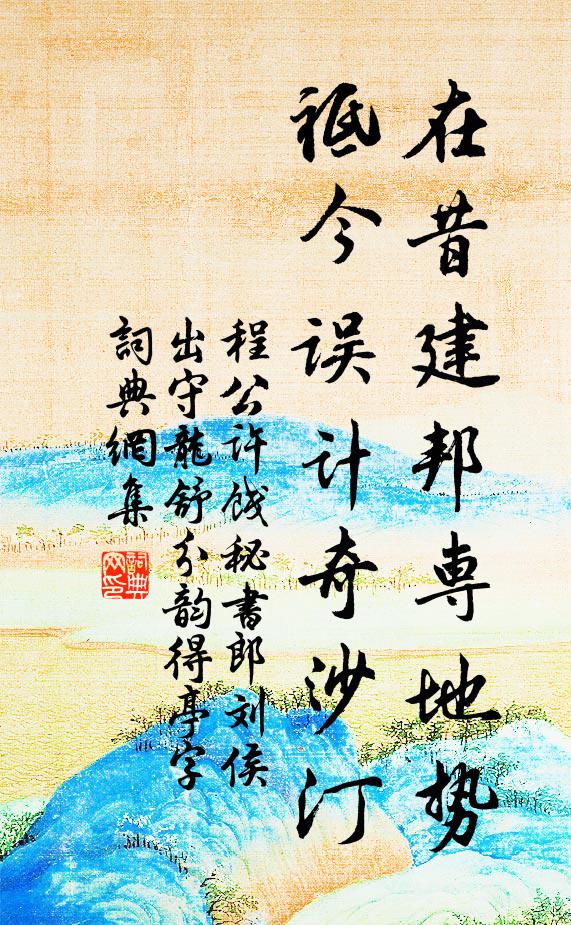 在昔建邦専地势
祗今误计奇沙汀
程公许饯秘书郎刘侯
出守龍舒分韵得亭字
詞典網集
詞典